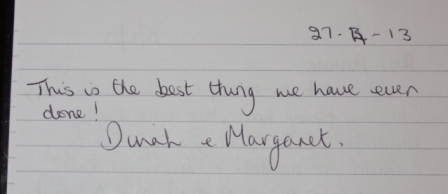 27. -13
This is the best thing we have ever
done!
Dinah & Margaret.